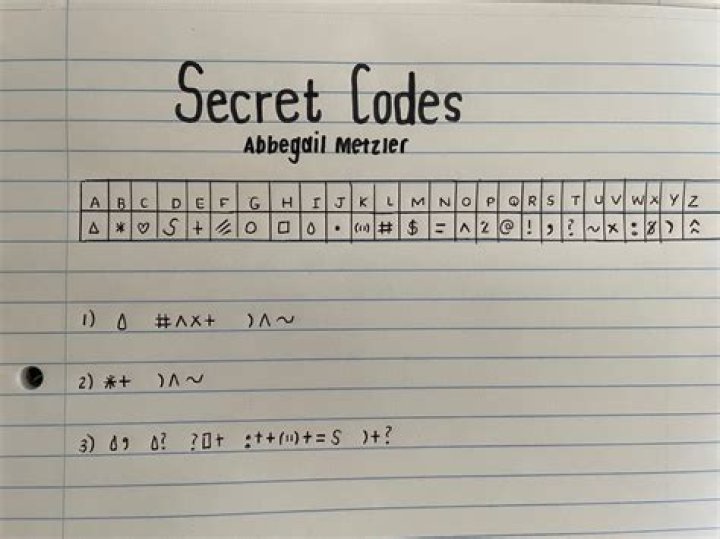 Secret Codes
Abbegail Metzler
A B C D E F G H I J K L M N O P Q R S T U V W X Y Z
△ * ♡ S + ⫽ ○ □ 💧 • (11) # $ = ^ 2 @ ! , ? ~ x : 8 ) ^^
1) 💧 #^x+ )^~
2) *+ )^~
3) 💧, 💧? ?□+ :++(11)+=S )+?